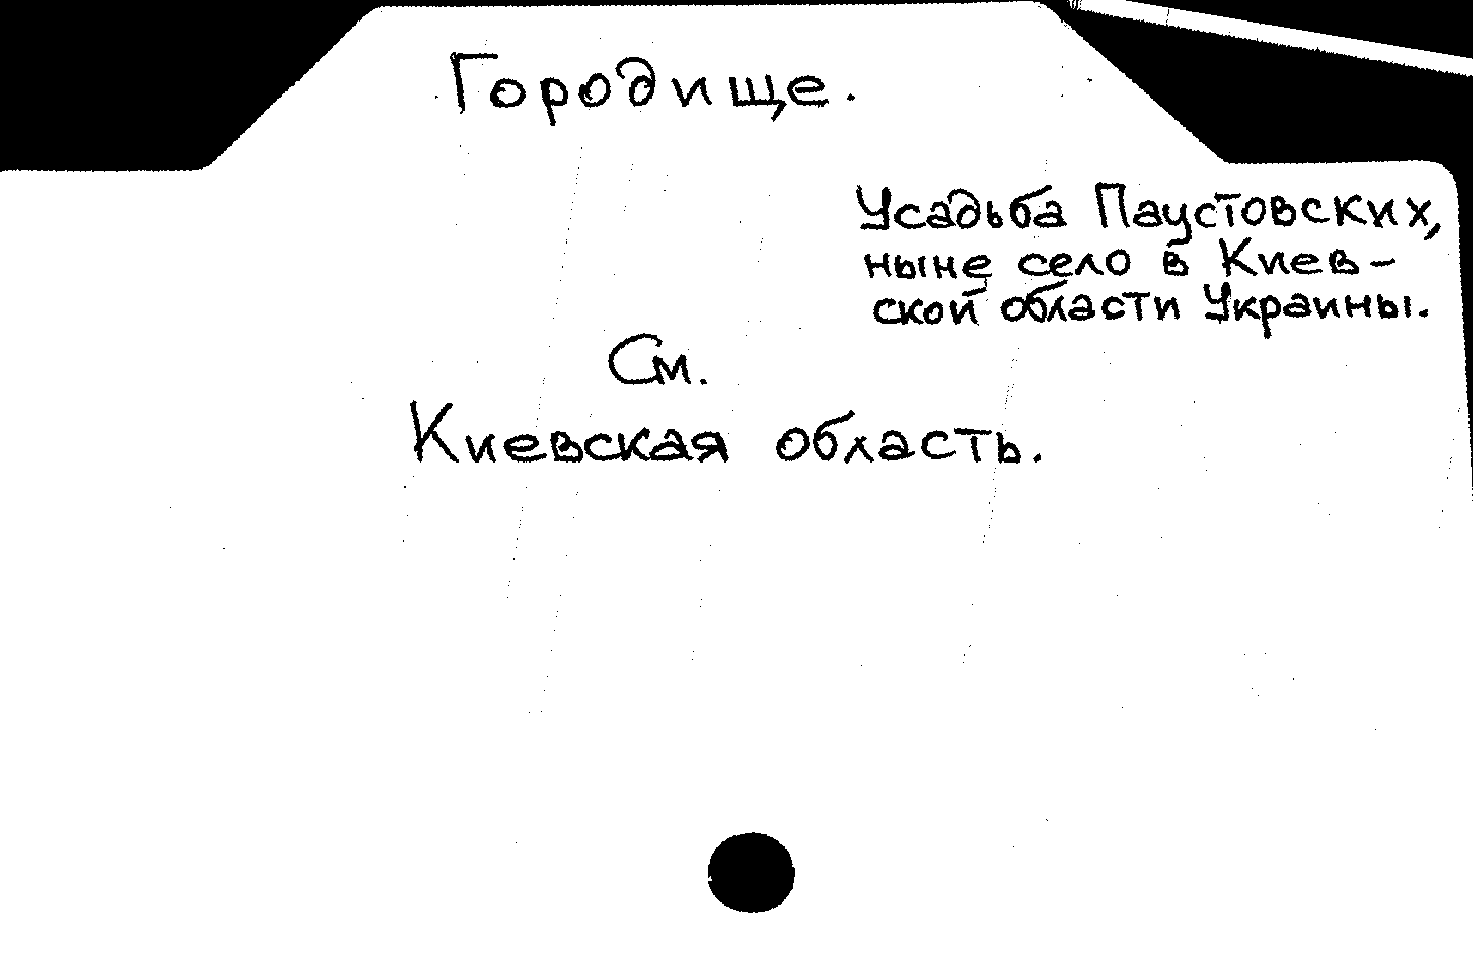 Городище.
Усадьба Паустовских,
ныне село в Киев-
ской области Украины.
См.
Киевская область.